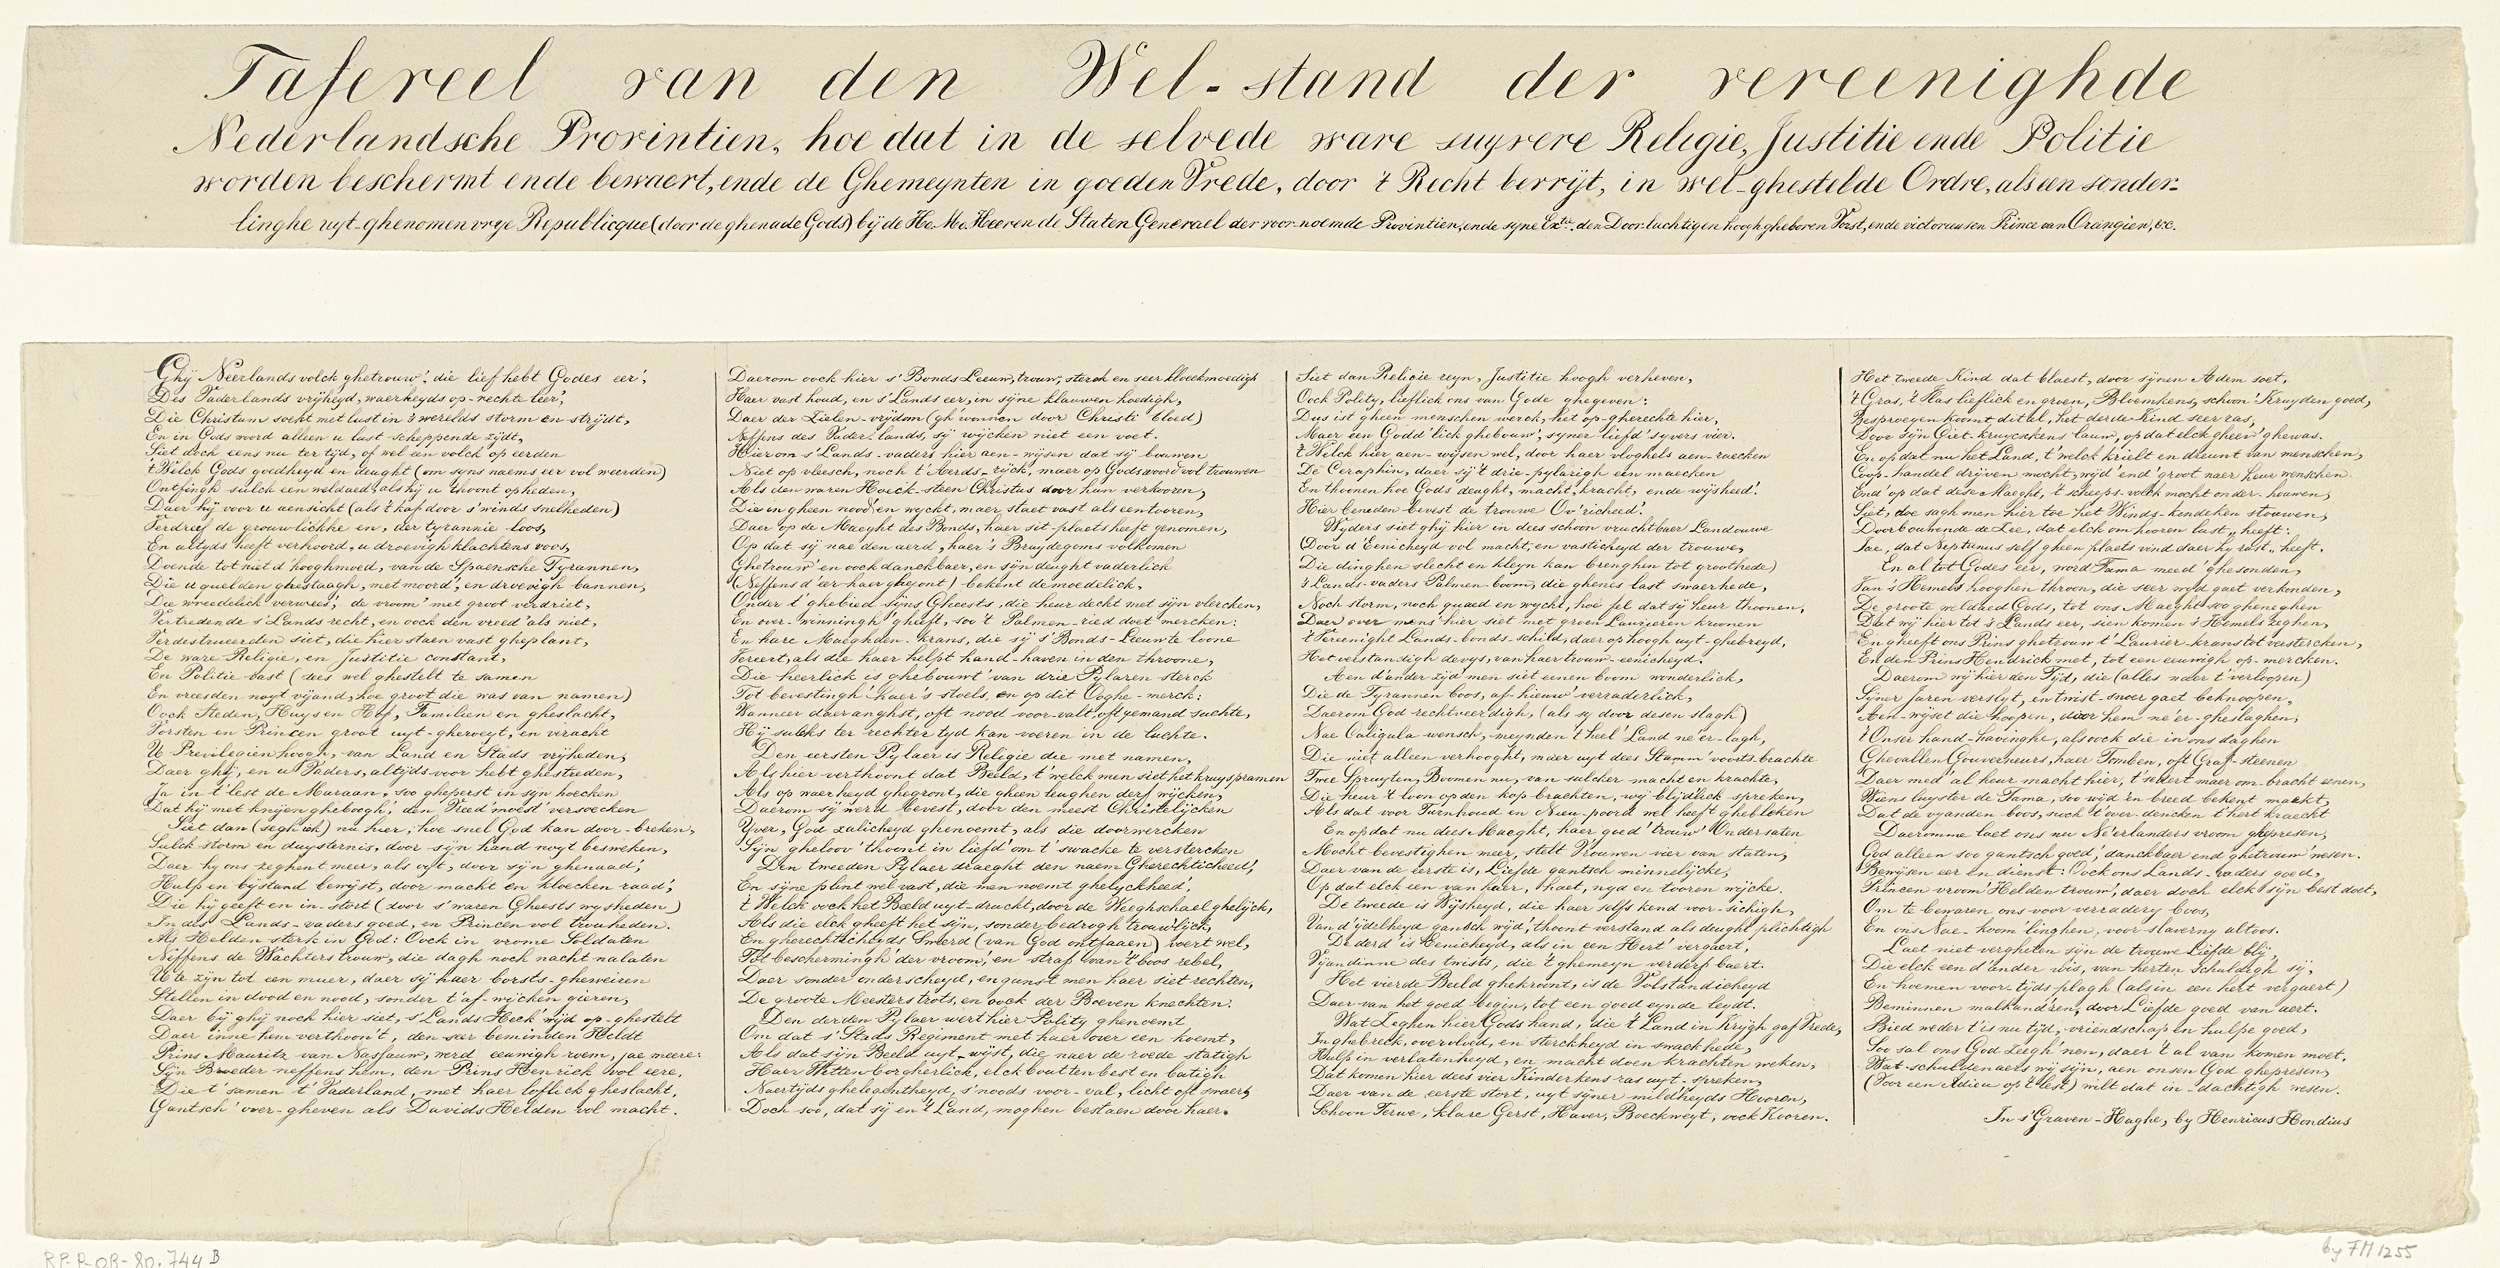 Tafereel van den Wel-stand der vereenighde
Nederlandsche Provintien, hoe dat in de selvede ware suyvere Religie, Justitie ende Politie
worden beschermt ende bewaert, ende de Ghemeynten in goeden Vrede, door 't Recht berrijt, in wel-ghestelde Ordre, als een sonder-
linghe uyt-ghenomen vrye Republicque (door de ghenade Gods) bij de Ho: Mo: Heeren de Staten Generael der voor-noemde Provintien, ende syne Ex.tie den Door-luchtigen hoogh gheboren Vorst, ende victorieusen Prince van Orangien, &c.
Ghij Neerlands volck ghetrouw', die lief hebt Godes eer',
Des Vaderlands vrijheyd, waerheyds op-rechte leer',
Die Christum soekt met lust in 's werelds storm en strijdt,
En in Gods woord alleen u lust scheppende zijdt,
Siet doch eens nu ter tijd, of wel een volck op eerden
't Welck Gods goedheyd en deught (om syns naems eer vol weerden)
Ontfingh sulck een weldaed, als hij u thoont op heden,
Daer hij voor u aensicht (als 't kaf door s'winds snelheden)
Verdreef de grouwlickke en, der tyrannie loos,
En altyds heeft verhoord, u droevigh klachtens voos,
Doende tot niet d'hooghmoed, van de Spaensche Tyrannen,
Die u quelden gheslaagh, met moord', en droevigh bannen,
Die wreedelick verwrees', de vroom' met groot verdriet,
Vertredende s'Lands recht, en oock den vreed' als niet,
Verdestrueerden siet, die hier staen vast gheplant,
De ware Religie, en Justitie constant,
En Politie vast (dees wel ghestelt te samen
En vreesden noyt vijand, hoe groot die was van namen)
Oock Steden, Huys en Hof, Familien en gheslacht,
Vorsten en Princen groot uyt-gherveyt, en veracht
U Previlegien hoogh, van Land en Stads vrijheden,
Daer ghij, en u Vaders, altijds voor hebt ghestreden,
Ja in 't lest de Maraan, soo gheperst in syn hoecken
Dat hij met knijen gheboogh', den Vreed' moest versoecken
Siet dan (segh ick) nu hier, hoe snel God kan door-breken,
Sulck storm en duysternis, door sijn hand noyt besweken,
Daer hy ons zeghent meer, als oyt, door sijn ghenaad',
Hulp en bijstand bewijst, door macht en kloecken raad',
Die hij geeft en in-stort (door s'waren Gheests wysheden)
In des Lands-vaders goed, en Princen vol trouheden.
Als Helden sterk in God: Oock in vrome Soldaten
Neffens de Wachters trouw, die dagh noch nacht nalaten
U te zijn tot een muer, daer sij haer borsts-gheweiren
Stellen in dood en nood, sonder t'af-wijcken gieren,
Daer bij ghij noch hier siet, s'Lands Heck' wijd op-ghestelt
Daer inne hem verthoon't, den seer beminden Heldt
Prins Mauritz van Nassauw, werd eeuwigh roem, jae meere:
Sijn Broeder neffens hem, den Prins Henrick vol eere,
Die t'samen t'Vaderland, met haer loflick gheslacht,
Gantsch' over-gheven als Davids Helden vol macht.
Daerom oock hier s'Bonds Leeuw, trouw, sterck en seer kloeckmoedigh
Haer vast houd, en s'Lands eer, in sijne klauwen hoedigh,
Daer der Zielen-vrijdom (gh'wonnen door Christi bloed)
Neffens des Vader-lands, sij wijcken niet een voet.
Hierom s'Lands-vaders hier aen-wijsen dat sij bouwen
Niet op vleesch, noch t'Aerds-rijck, maer op Gods woord vol trouwen
Als den waren Hoeck-steen Christus door hun verkooren,
Die in gheen nood en wyckt, maer staet vast als een tooren,
Daer op de Maeght des Bonds, haer sit-plaets heeft genomen,
Op dat sij nae den aerd, haer's Bruydegoms volkomen
Ghetrouw' en oock danckbaer, en sijn deught vaderlick
(Neffens d'eer haer ghejont) bekent demoedelick,
Onder t'ghebied sijns Gheests, die heur deckt met sijn vlercken,
En over-winningh gheeft, soo't Palmen-ried doet mercken:
En hare Maeghden-krans, die sij s'Bonds-Leeuw te loone
Vereert, als die haer helpt hand-haven in den throone,
Die heerlick is ghebouwt van drie Pylaren sterck
Tot bevestingh haer's stoels, en op dit Ooghe-merck:
Wanneer daer anghst, oft nood voor-valt, oft yemand suchte,
Hij sulcks ter rechter tyd kan voeren in de luchte.
Den eersten Pylaer is Religie die met namen,
Als hier verthoont dat Beeld, t'welck men siet het kruys pramen
Als op waerheyd ghegront, die gheen teughen derf wijcken,
Daerom sij werd bevest, door den meest Christelijcken
Yver, God zalicheyd ghenoemt, als die doorwercken
Sijn gheloov' thoont in liefd' om t'swacke te verstercken
Den tweeden Pylaer draeght den naem Gherechticheed',
En sijne plint wel vast, die men noemt ghelyckheed',
't Welck oock het Bæld uyt-druckt, door de Weeghschael ghelijck,
Als die elck gheeft het sijn, sonder bedrogh trouw'lijck,
En gherechticheyds Sweerd (van God ontfaaen) voert wel,
Tot beschermingh der vroom', en straf van 't boos rebel,
Daer sonder onderscheyd, en gunst men haer siet rechten,
De groote Meesters trots, en oock der Boeven knechten.
Den derden Pylaer wert hier Polity ghenoemt
Om dat s'Stads Regiment met haer over een koemt,
Als dat sijn Beeld uyt-wijst, die naer de roede statigh
Haer Witten borgherlick, elck bout ten best en batigh
Naer tijds gheleghentheyd, s'noods voor-val, licht of swaer,
Doch soo, dat sij en 't Land, moghen bestaen door haer.
Siet dan Religie reyn, Justitie hoogh verheven,
Oock Polity, lieflick ons van Gode ghegeven:
Dus ist gheen menschen werck, het op-gherechte hier,
Maer een Godd'lick ghebouw', syner liefd' syvers vier.
't Welck hier aen-wijsen wel, door haer vloghels aen-raecken
De Ceraphin, daer sij't drie-pylarigh een maecken
En thoonen hoe Gods deught, macht, kracht, ende wijsheed'.
Hier beneden bevest de trouwe Ov'richeed'.
Wyders siet ghij hier in dees schoon vruchtbaer Landouwe
Door d'Eenicheyd vol macht, en vasticheyd der trouwe,
Die dinghen slecht en kleyn kan brenghen tot groothede)
's Lands-vaders Palmen-boom, die ghenes last swaerhede,
Noch storm, noch quaed en wyckt, hoe fel dat sij heur thoonen,
Daer over mens' hier siet met groen Laurieren kroonen
't Vereenight Lands-bonds-schild, daer op hoogh uyt-ghebreyd,
Het verstandigh devys, van haer trouw-eenicheyd.
Aen d'ander zijd men siet eenen boom wonderlick,
Die de Tyrannen boos, af-hieuw' verraderlick,
Daerom God rechtveerdigh, (als sy door desen slagh)
Nae Caligula wensch, meynden t'heel' Land ne'er-lagh,
Die niet alleen verhooght, maer uyt dees Stamm' voorts brachte
Twee Spruyten, Boomen nu, van sulcher macht en krachte,
Die heur 't loon op den kop brachten, wij blijdlick spreken,
Als dat voor Turnhoud en Nieu-poord wel heeft ghebleken
En op dat nu dees' Maeght, haer goed' trouw' Ondersaten
Mocht bevestighen meer, stelt Vrouwen vier van staten,
Daer van de eerste is, Liefde gantsch minnelijcke,
Op dat elck een van haer, haet, nyd en tooren wijcke.
De tweede is Wijsheyd, die haer selfs kend voor-sichigh,
Van d'ijdelheyd gantsch wijd, thoont verstand als deught plichtigh
De derd' is Eenicheyd, als in een Hert' vergaert,
Vyandinne des twists, die 't ghemeyn verderf baert.
Het vierde Beeld ghekroont, is de Volstandicheyd
Daer van het goed begin, tot een goed eynde leydt.
Wat Zeghen hier Gods hand, die 't Land in Krygh gaf Vrede,
In ghebreck, overvloed, en sterckheyd in swackhede,
Hulp in verlatenheyd, en macht doen krachten weken,
Dat komen hier dees vier Kinderkens ras uyt-spreken,
Daer van de eerste stort, uyt syner mildheyds Hooren,
Schoon Terwe, klare Gerst, Haver, Boeckweyt, oock Kooren.
Het tweede Kind dat blaest, door sijnen Adem soet,
't Gras, 't Vlas lieflick en groen, Bloemkens, schoon' Kruyden goed,
Besproeyen koomt dit al, het derde Kind seer ras,
Door sijn Giet-kruyckskens lauw, op dat elck gheev' ghewas.
En op dat nu het Land, t'welck krielt en dreunt van menschen,
Coop-handel drijven mocht, wijd' end' groot naer heur wenschen
End' op dat dese Maeght, 't scheeps-volck mocht onder-houwen,
Siet, doe sagh men hier toe het Winds-kindeken stouwen,
Door bouwende de Zee, dat elck om hooren lust,, heeft:
Jae, dat Neptunus self gheen plaets vind daer hy rust,, heeft.
En al tot Godes eer, word Fama meed' ghesonden,
Van's Hemels hooghen throon, die seer wyd gaet verkonden,
De groote weldaed Gods, tot ons Maeght soo gheneghen
Dat wij hier tot s'Lands eer, sien komen s'Hemels zeghen,
En gheeft ons Prins ghetrouw t'Laurier-krans tot versterchen,
En den Prins Hendrick met, tot een eeuwigh op-mercken.
Daerom wij hier den Tijd, die (alles naer 't verloopen)
Sijner Jaren verslyt, en twist-snoer gaet beknoopen,
Aen-wijset die hoopen, door hem ne'er-gheslaghen,
't Onser hand-havinghe, als oock die in ons daghen
Ghevallen Gouverneurs, haer Tomben, oft Graf-steenen
Daer med' al heur macht hier, t'uedert maer om-bracht eenen,
Wiens luyster de Fama, soo wijd en breed bekent maekt,
Dat de vyanden boos, suck t'over-dencken t'hert kraeckt
Daeromme laet ons nu Ne'erlanders vroom ghepresen,
God alleen soo gantsch goed', danckbaer end ghetrouw' wesen.
Bewijsen eer en dienst: Oock ons Lands-vaders goed,
Princen vroom Helden trouw', daer doch elck sijn best doet,
Om te bewaren ons voor verradery boos,
En ons Nae-koom'linghen, voor slaverny altoos.
Laet niet vergheten sijn de trouwe Liefde blij,
Die elck een d'ander wis, van herten schuldigh sij,
En hoemen voor-tijds plagh (als in een hebt vergaert)
Beminnen malkand'ren, door Liefde goed van aert.
Bied weder t'is nu tijd, vriendschap en hulpe goed,
Soo sal ons God zegh'nen, daer 't al van komen moet.
Wat schulden aers wij sijn, aen onsen God ghepresen,
(Voor een Adieu op 't lest) wilt dat in-dachtigh wesen.
In s'Graven-Haghe, by Henricus Hondius
RP-P-OB-80.744 B
by FM 1255